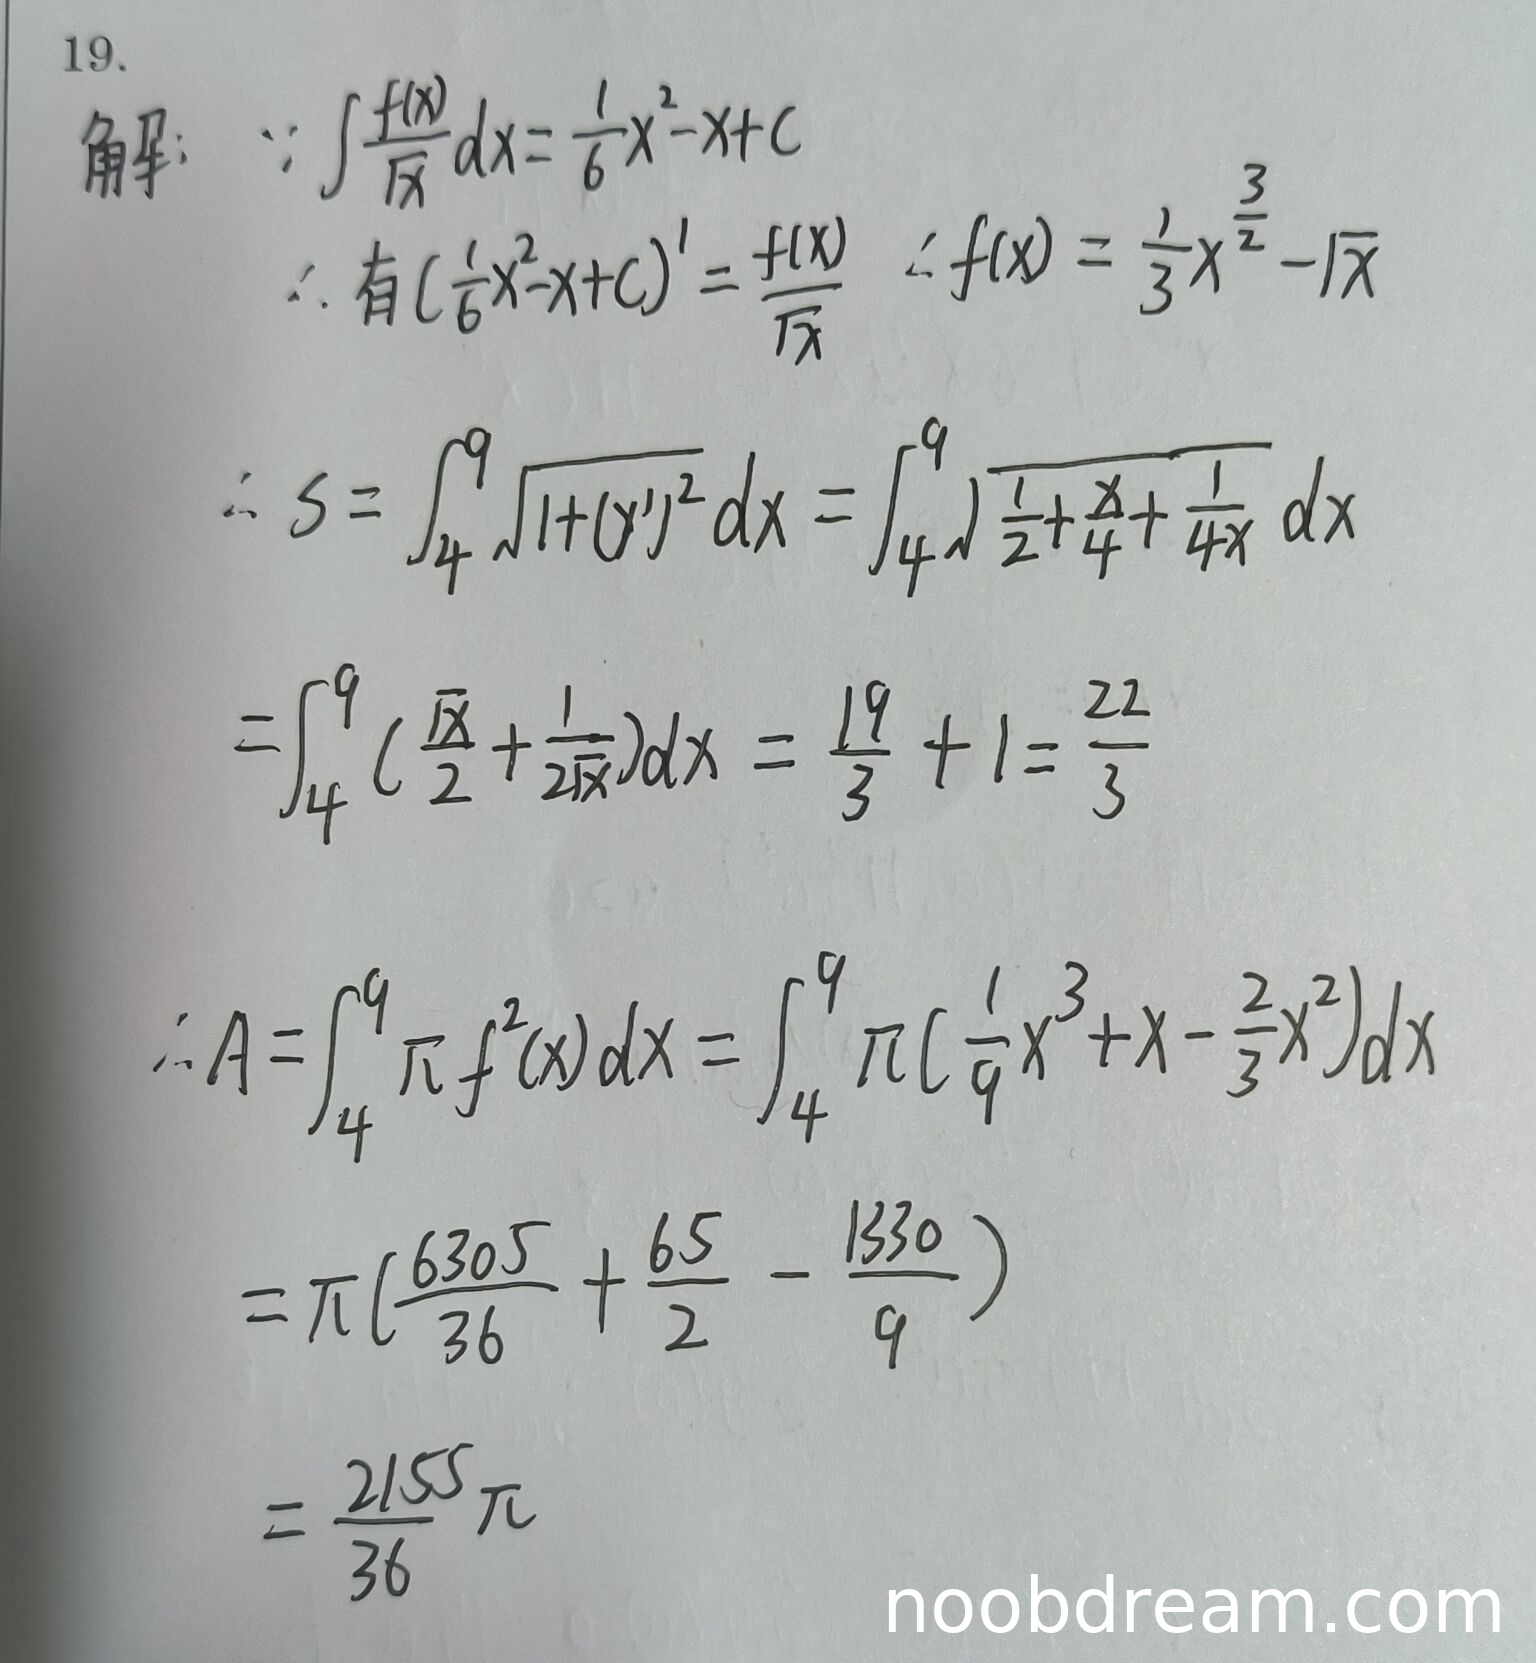 19.
解: ∵ ∫ f(x)/√x dx = 1/6 x² - x + C
∴ 有 (1/6 x² - x + C)' = f(x)/√x ∴ f(x) = 1/3 x^(3/2) - √x
∴ S = ∫₄⁹ √(1+(y')²) dx = ∫₄⁹ √(1/2 + x/4 + 1/(4x)) dx
= ∫₄⁹ (√x/2 + 1/(2√x)) dx = 19/3 + 1 = 22/3
∴ A = ∫₄⁹ π f²(x) dx = ∫₄⁹ π (1/9 x³ + x - 2/3 x²) dx
= π (6305/36 + 65/2 - 1330/9)
= 2155/36 π
noobdream.com